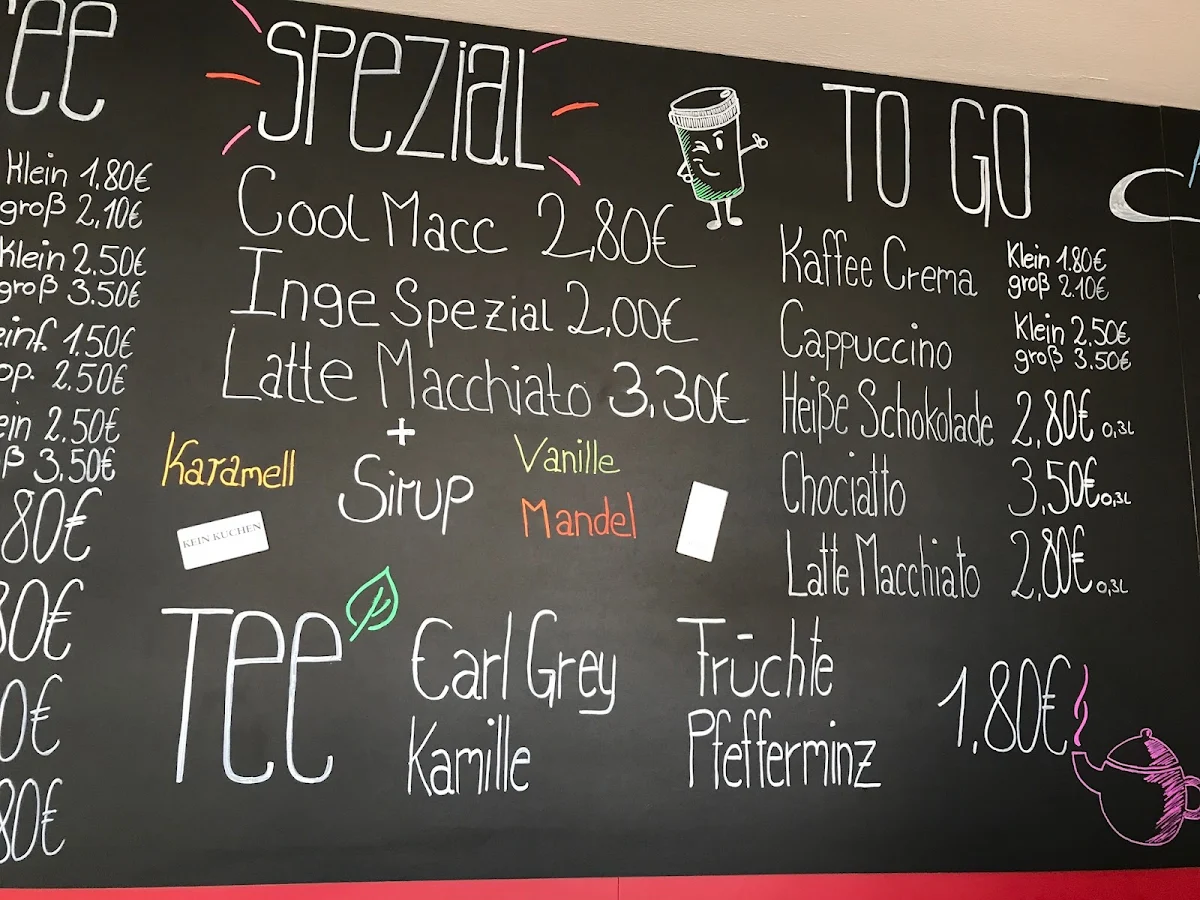 ee
Klein 1.80€
groß 2.10€
Klein 2.50€
groß 3.50€
einf. 1.50€
op. 2.50€
ein 2.50€
ß 3.50€
80€
80€
0€
80€
SPEZIAL
Cool Macc 2,80€
Inge Spezial 2,00€
Latte Macchiato 3,30€
+
Karamell Sirup Vanille
Mandel
KEIN KUCHEN
TO GO
Kaffee Crema Klein 1.80€
groß 2.10€
Cappuccino Klein 2.50€
groß 3.50€
Heiße Schokolade 2,80€ 0,3L
Chociatto 3,50€ 0,3L
Latte Macchiato 2,80€ 0,3L
Tee Earl Grey Früchte 1,80€
Kamille Pfefferminz